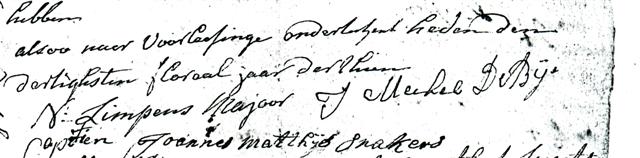 hebben
alsoo naer voorleesinge onderteekent heden den
dertighsten floreal jaar derthien
N. Limpens Majoor J Mechel De Bije
Joannes matthijs Snakers